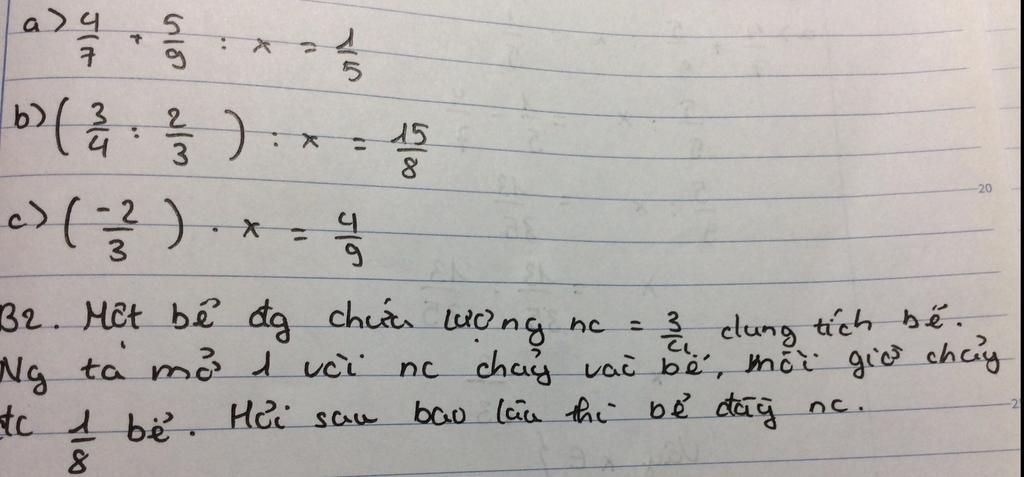 a> 4/7 + 5/9 : x = 1/5
b) ( 3/4 : 2/3 ) : x = 15/8
20
c> ( -2/3 ) . x = 4/9
B2. Một bể đg chứa lượng nc = 3/4 dung tích bể.
Ng ta mở 1 vòi nc chảy vào bể, mỗi giờ chảy
đc 1/8 bể. Hỏi sau bao lâu thì bể đầy nc.